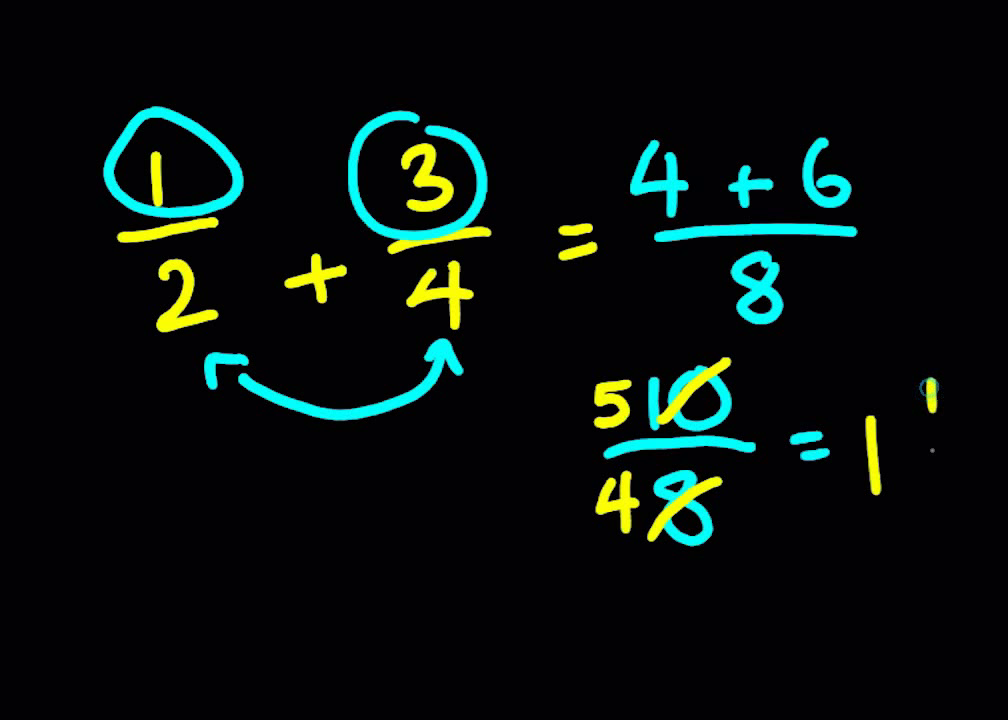 1/2 + 3/4 = (4 + 6)/8
5 10/4 8 = 1 1